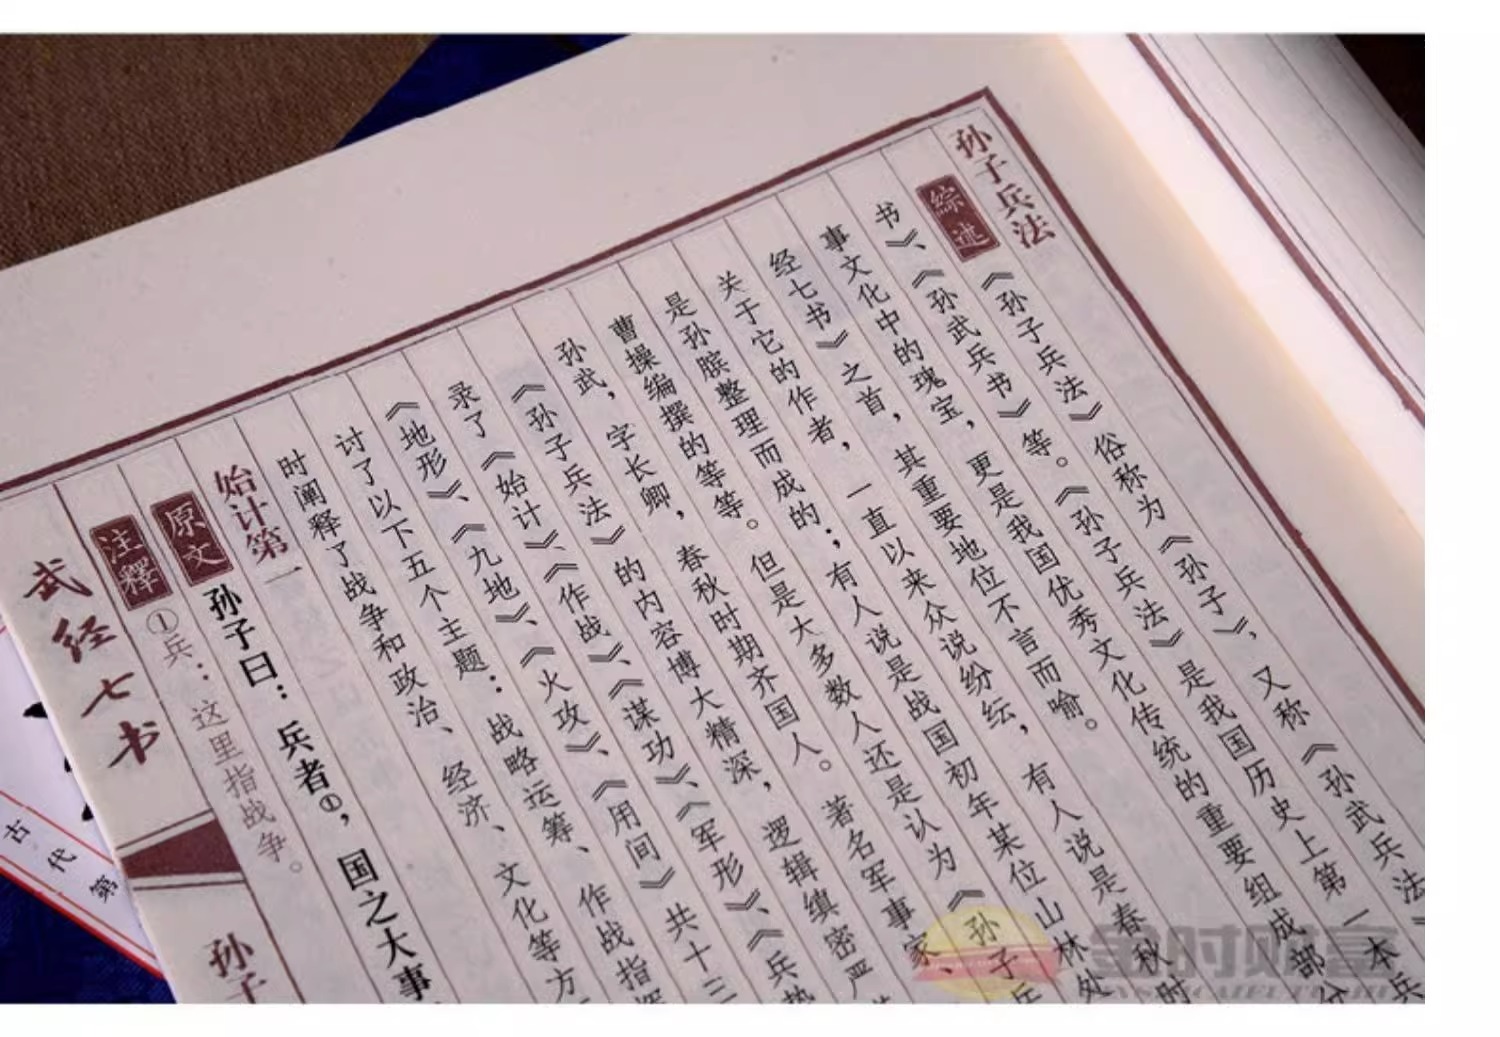 孙子兵法
綜述
《孙子兵法》俗称为《孙子》，又称《孙武兵法》
书》、《孙武兵书》等。《孙子兵法》是我国历史上第一本兵
事文化中的瑰宝，更是我国优秀文化传统的重要组成部分
经七书》之首，其重要地位不言而喻。
关于它的作者，一直以来众说纷纭，有人说是春秋时
是孙膑整理而成的；有人说是战国初年某位山林处
曹操编撰的等等。但是大多数人还是认为《孙子兵
孙武，字长卿，春秋时期齐国人。著名军事家、
《孙子兵法》的内容博大精深，逻辑缜密严
录了《始计》、《作战》、《谋功》、《军形》、《兵势
《地形》、《九地》、《火攻》、《用间》共十三
讨了以下五个主题：战略运筹、作战指挥
时阐释了战争和政治、经济、文化等方
始计第一
原文
孙子曰：兵者①，国之大事
注釋
①兵：这里指战争。
武经七书
孙子
古代第
金时财富